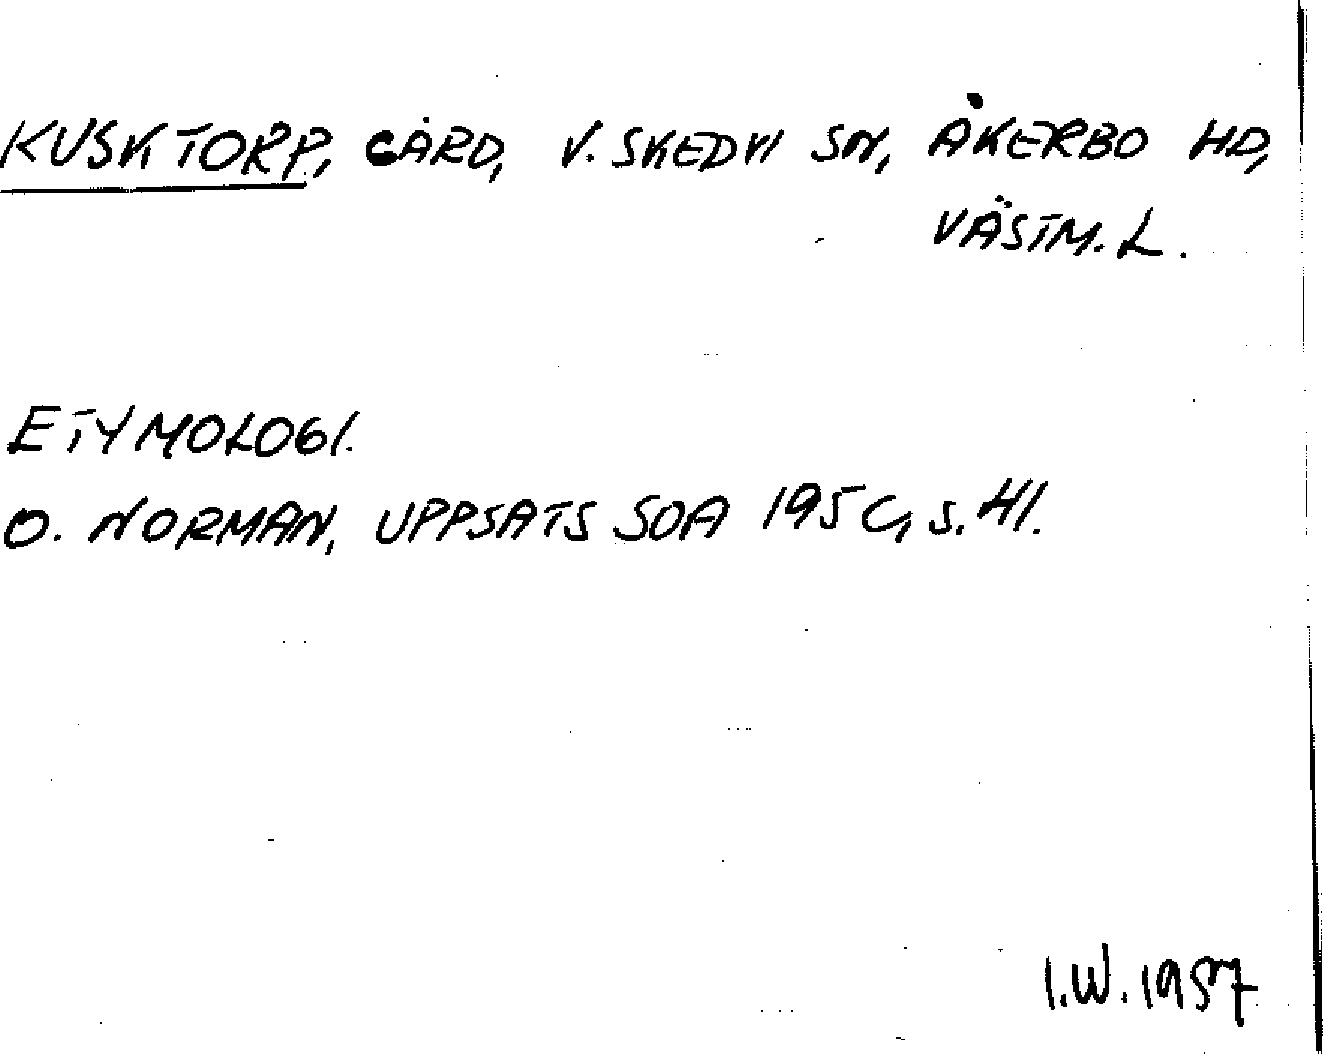 KUSKTORP, GÅRD, V. SKEDVI SN, ÅKERBO HD,
VÄSTM. L.
ETYMOLOGI.
O. NORMAN, UPPSATS SOA 1956, s. 41.
I.W. 1957